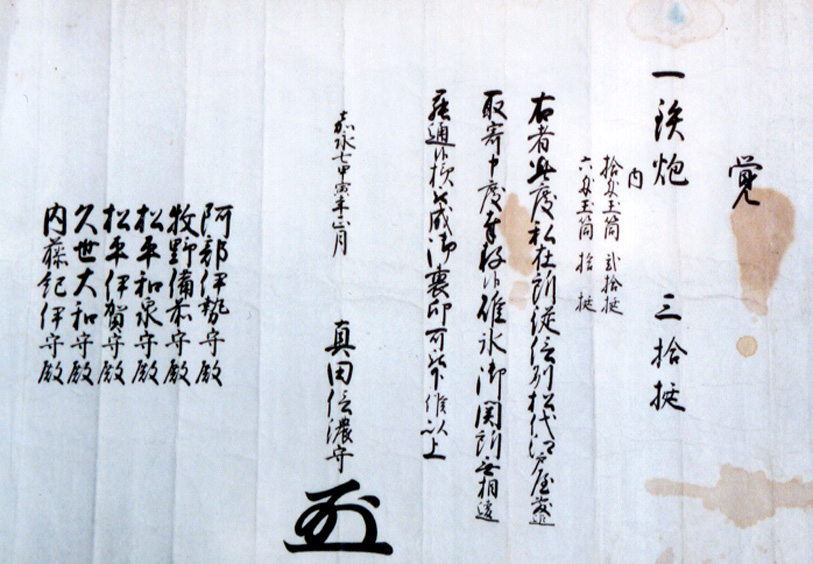 覚
一鉄炮 三拾挺
内
拾匁玉筒 弐拾挺
六匁玉筒 拾挺
右者此度私在所従信州松代江戸屋敷迄
取寄申度奉存候碓氷御関所無相違
罷通候様被成御裏印可被下候以上
嘉永七甲寅年正月
真田信濃守
阿部伊勢守殿
牧野備前守殿
松平和泉守殿
松平伊賀守殿
久世大和守殿
内藤紀伊守殿